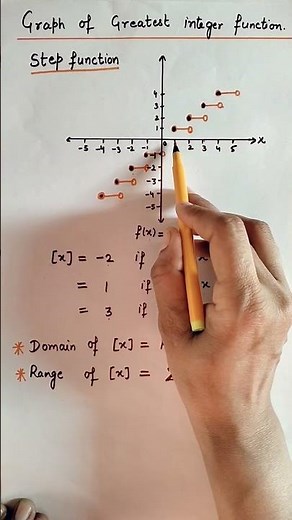 Graph of Greatest integer function.
Step function
4
3
2
1
-5 -4 -3 -2 -1 2 3 4 5 x
-1
-2
-3
-4
-5
f(x)=
[x] = -2 if x
= 1 if x
= 3 if
* Domain of [x] =
* Range of [x] = Z